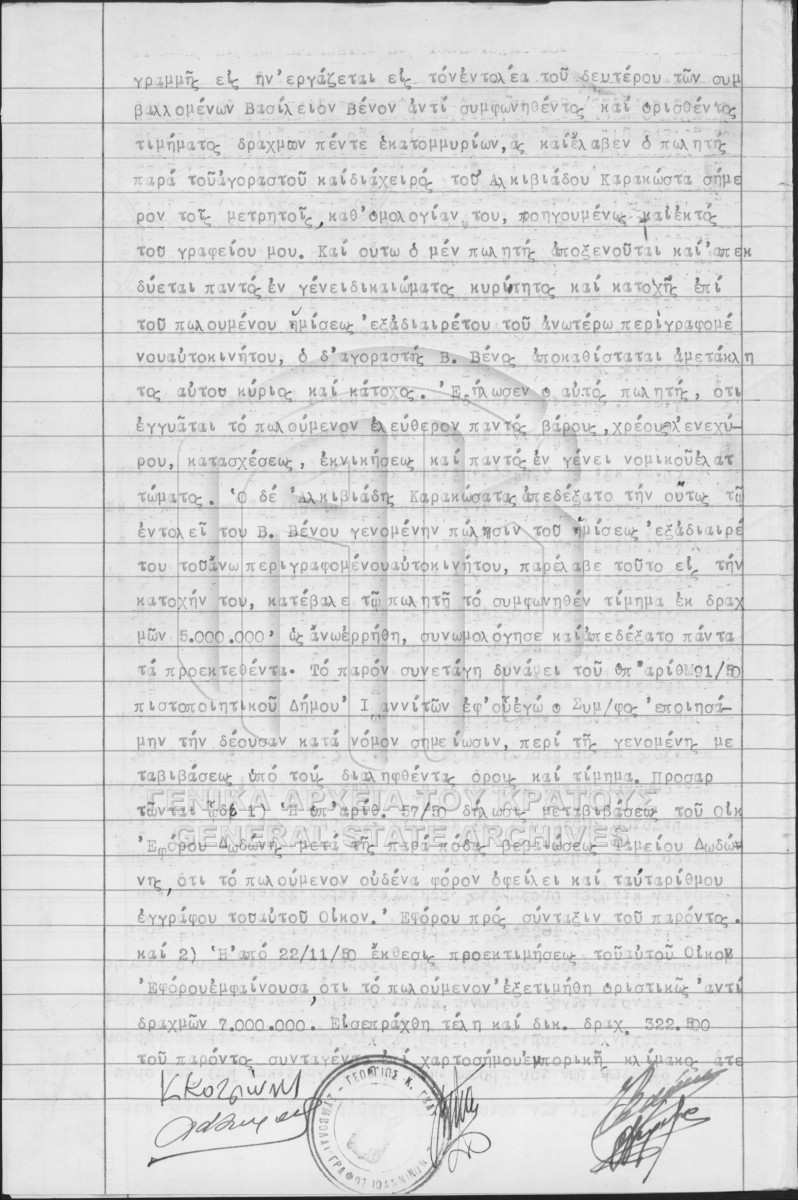 γραμμῆς εἰς ην'εργάζεται εἰς τόνἐντολέα τοῦ δευτέρου τῶν συμ
βαλλομένων Βασίλειον Βένον ἀντί συμφωνηθέντος καί ορισθέντος
τιμήματος δραχμων πέντε ἑκατομμυρίων,ἁς καίἔλαβεν ὁ πωλητής
παρά τοῦἀγοραστοῦ καίδιάχειρός τοῦ Αλκιβιάδου Καρακώστα σήμε
ρον τοῖς μετρητοῖς,καθ'ομολογίαν του, προηγουμένως καίἐκτός
του γραφείου μου. Καί ουτω ὁ μέν πωλητής ἀποξενοῦται καί'απεκ
δύεται παντός ἐν γένειδικαιώματος κυριότητος καί κατοχῆς ἐπί
τοῦ πωλουμένου ἡμίσεως 'εξἀδιαιρέτου τοῦ ἀνωτέρω περιγραφομέ
νουαὐτοκινήτου, ὁ δ'αγοραστής Β. Βένος ἀποκαθίσταται ἀμετάκλη
τος αὐτου κύριος καί κάτοχος. 'Εδήλωσεν ο αὐτός πωλητής, οτι
ἐγγυᾶται τό πωλούμενον ἐλεύθερον παντός βάρους,χρέους'ενεχύ-
ρου, κατασχέσεως, ἐκνικήσεως καί παντός ἐν γένει νομικοῦἐλατ
τώματος. 'Ο δέ 'Αλκιβιάδης Καρακώσατας ἀπεδέξατο τήν οὕτως τῷ
ἐντολεῖ του Β. Βένου γενομένην πώλησιν τοῦ ἡμίσεως 'εξἀδιαιρέ
του τοῦἄνω περιγραφομένουαὐτοκινήτου, παρέλαβε τοῦτο εἰς τήν
κατοχήν του, κατέβαλε τῷ πωλητῆ τό συμφωνηθέν τίμημα ἐκ δραχ
μῶν 5.000.000, ὡς ἄνωἐρρήθη, συνωμολόγησε καίἀπεδέξατο πάντα
τά προεκτεθέντα. Τό παρόν συνετάγη δυνάμει τοῦ ὑπ'αριθμ91/50
πιστοποιητικοῦ Δήμου' Ιωαννίτῶν ἐφ'οὗἐγώ ο Συμ/φος 'εποιησά-
μην τήν δέουσαν κατά νόμον σημείωσιν, περί τῆς γενομένη με
ταβιβάσεως ὑπό τούς διαληφθέντα ὁρους καί τίμημα. Προσαρ
τῶνται ὧδε 1) 'Η ὑπ'αριθ. 57/50 δήλωσις μεταβιβάσεως τοῦ Οἰκ
'Εφόρου Δωδώνης μετά τῆς παρά πόδας βεβαιώσεως Ταμείου Δωδών
νης, ὁτι τό πωλούμενον οὐδένα φόρον ὀφείλει καί ταὐταρίθμου
ἐγγράφου τοῦαὐτοῦ Οἰκον.' Εφόρου πρός σύνταξιν τοῦ παρόντος.
καί 2) 'Η'από 22/11/50 ἔκθεσις προεκτιμήσεως τοῦαὐτοῦ Οἰκον
'Εφόρουἐμφαίνουσα,ὁτι τό πωλούμενον'εξετιμήθη ὁριστικῶς 'αντί
δραχμῶν 7.000.000. Εἰσεπράχθη τέλη καί δικ. δραχ. 322.500
τοῦ παρόντος συνταγέντος ἐπί χαρτοσήμουἐμπορικῆς κλίμακος ἀτε
ΓΕΝΙΚΑ ΑΡΧΕΙΑ ΤΟΥ ΚΡΑΤΟΥΣ
GENERAL STATE ARCHIVES
ΓΕΩΡΓΙΟΣ Κ.